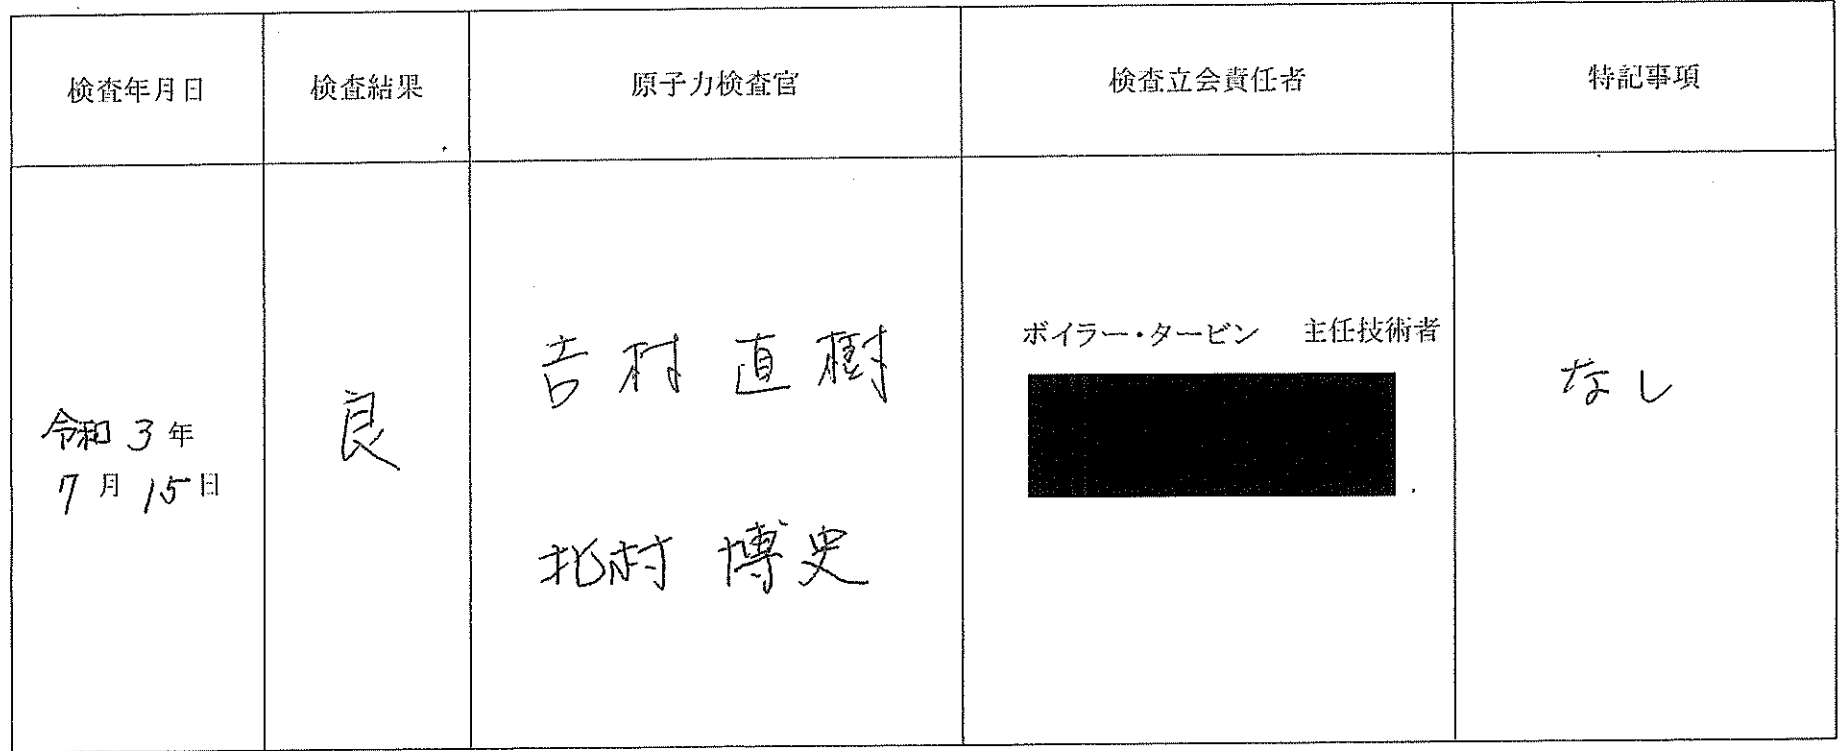 検査年月日
検査結果
原子力検査官
検査立会責任者
特記事項
令和3年
7月15日
良
吉村 直樹
北村 博史
ボイラー・タービン 主任技術者
なし